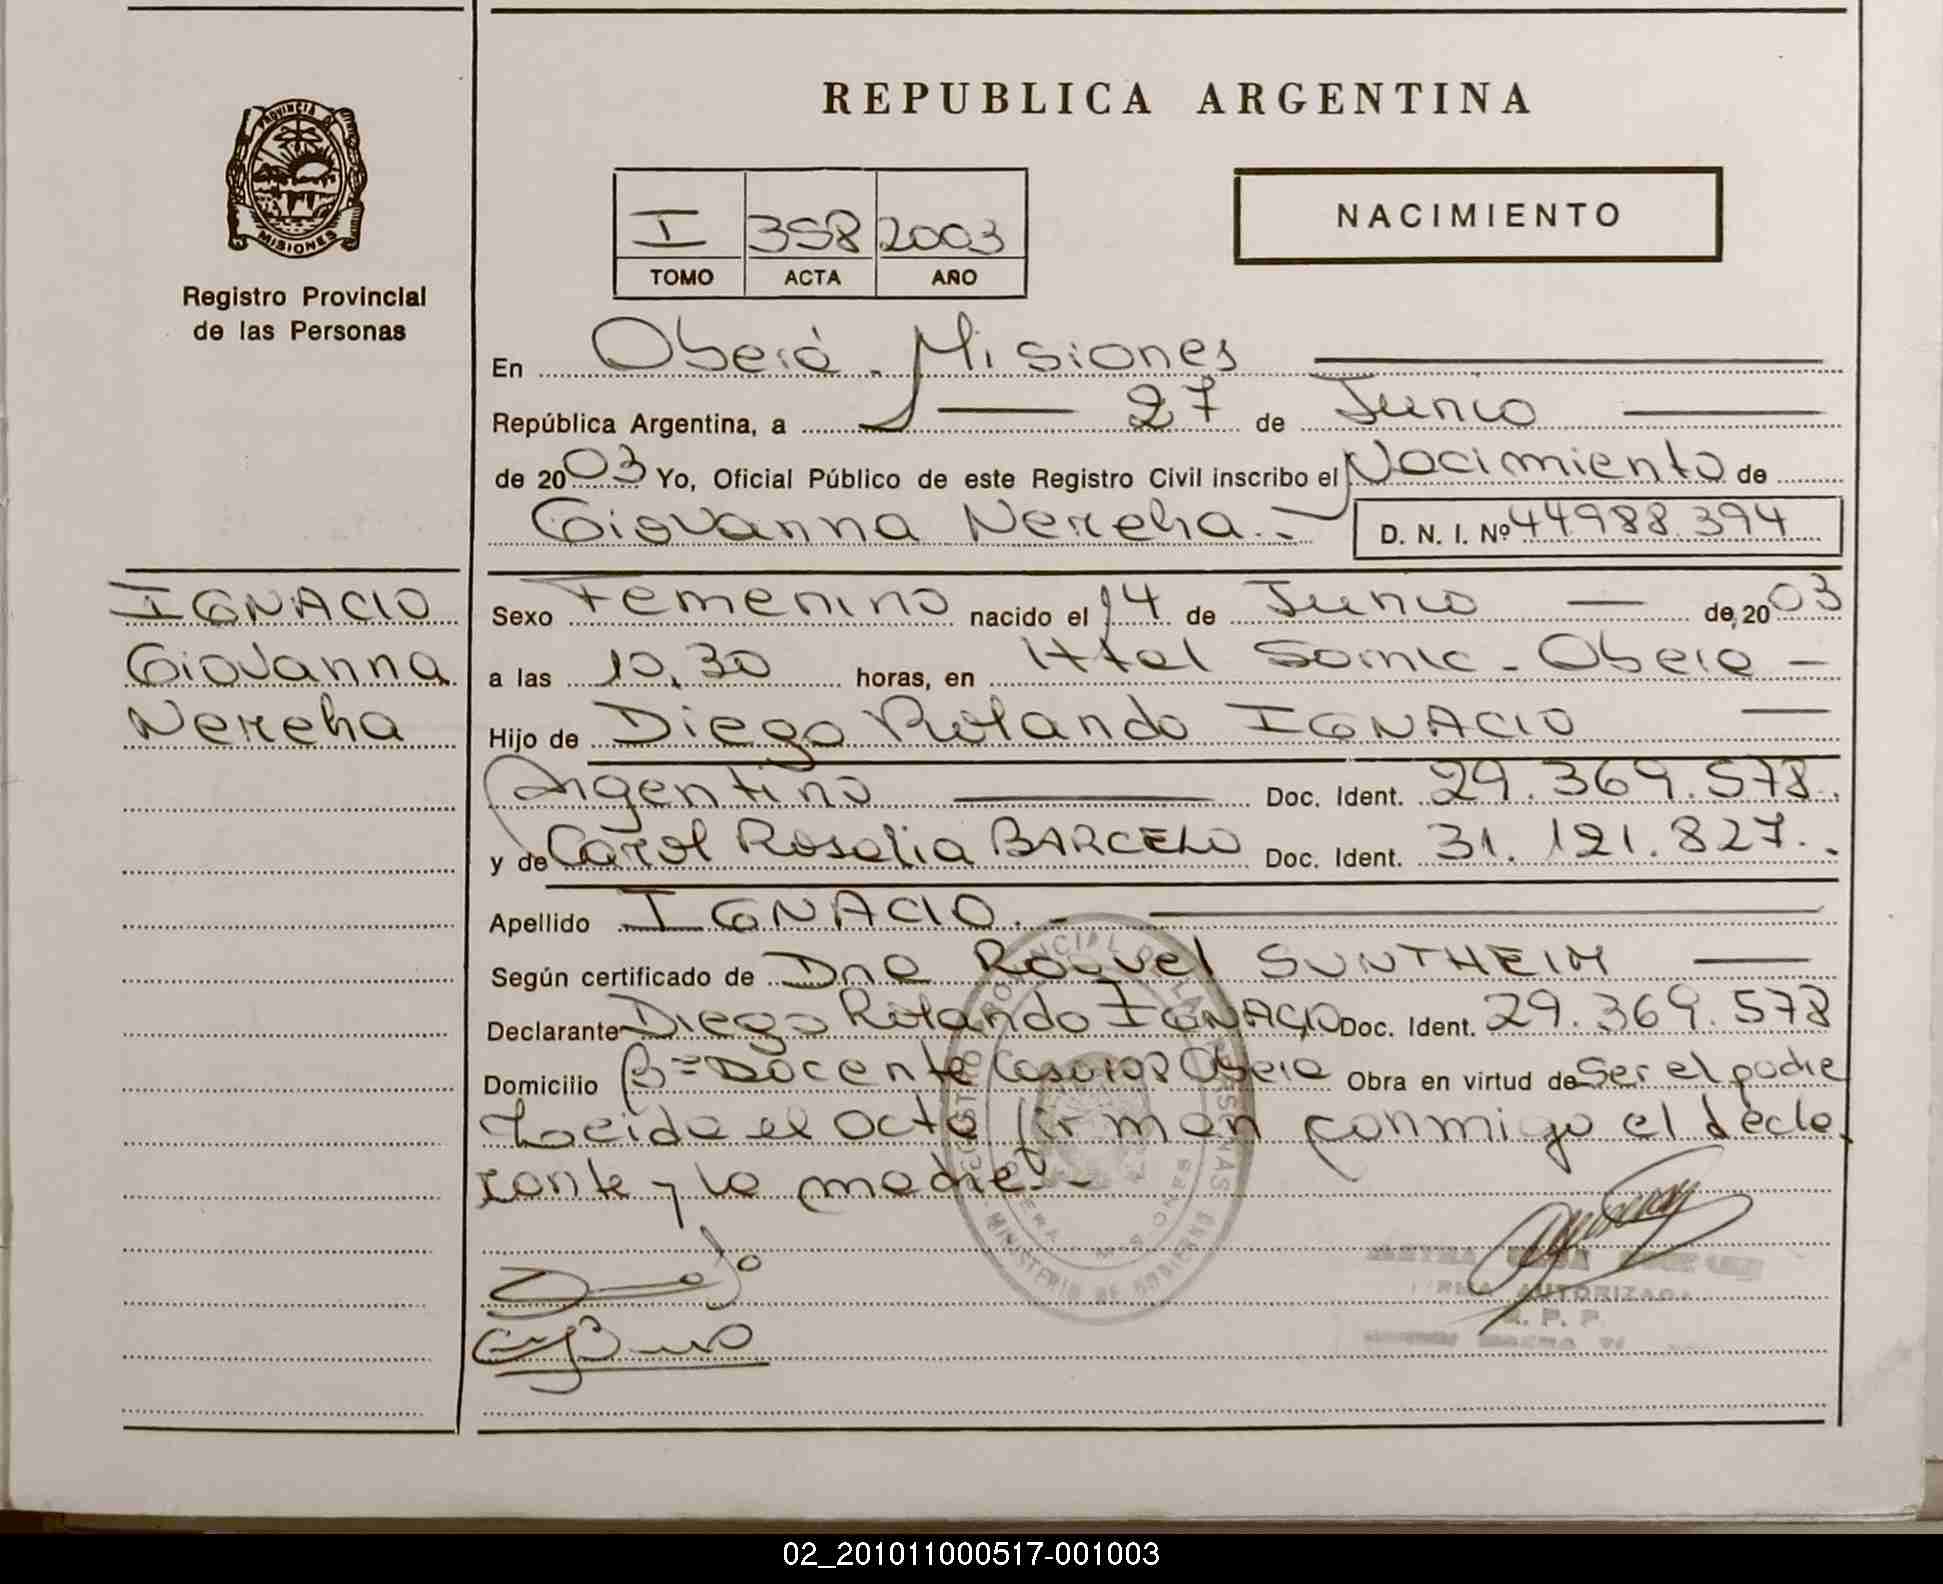 REPUBLICA ARGENTINA
PROVINCIA DE
MISIONES
Registro Provincial
de las Personas
I 358 2003
TOMO ACTA AÑO
NACIMIENTO
En Oberá - Misiones
República Argentina, a 27 de Junio
de 2003 Yo, Oficial Público de este Registro Civil inscribo el Nacimiento de
Giovanna Nereha.- D. N. I. Nº 44988.394
IGNACIO
Giovanna
Nereha
Sexo Femenino nacido el 14 de Junio de 2003
a las 10,30 horas, en Htal Samic - Obera -
Hijo de Diego Rolando IGNACIO
Argentino Doc. Ident. 29.369.578.
y de Carol Rosalia BARCELO Doc. Ident. 31.121.827.
Apellido IGNACIO.-
Según certificado de Dra Raquel SUNTHEIM
Declarante Diego Rolando IGNACIO Doc. Ident. 29.369.578
Domicilio Bº Docente Obera Obra en virtud de Ser el padre
Leida el acta firman conmigo el decla
rante y la madre.-
MINISTERIO DE GOBIERNO
FIRMA AUTORIZADA
R. P. P.
02_201011000517-001003